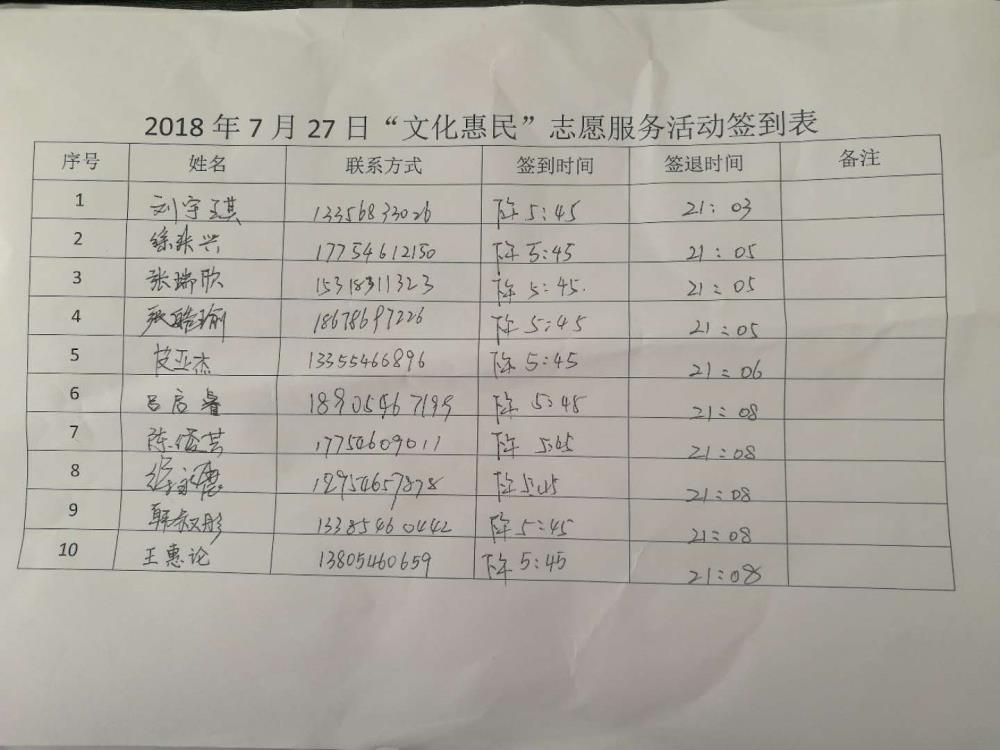 2018 年 7 月 27 日“文化惠民”志愿服务活动签到表
序号 姓名 联系方式 签到时间 签退时间 备注
1 刘宇琪 13356833026 下午 5:45 21:03
2 徐振兴 17754612150 下午 5:45 21:05
3 张瑞欣 15318311323 下午 5:45. 21:05
4 张皓瑜 18678697226 下午 5:45 21:05
5 皮亚杰 13355466896 下午 5:45 21:06
6 吕启睿 下午 5:45 21:08
7 17754609011 下午 21:08
8 下午 5:45 21:08
9 韩叔彤 13385460442 下午 5:45 21:08
10 王惠论 13805460659 下午 5:45 21:08